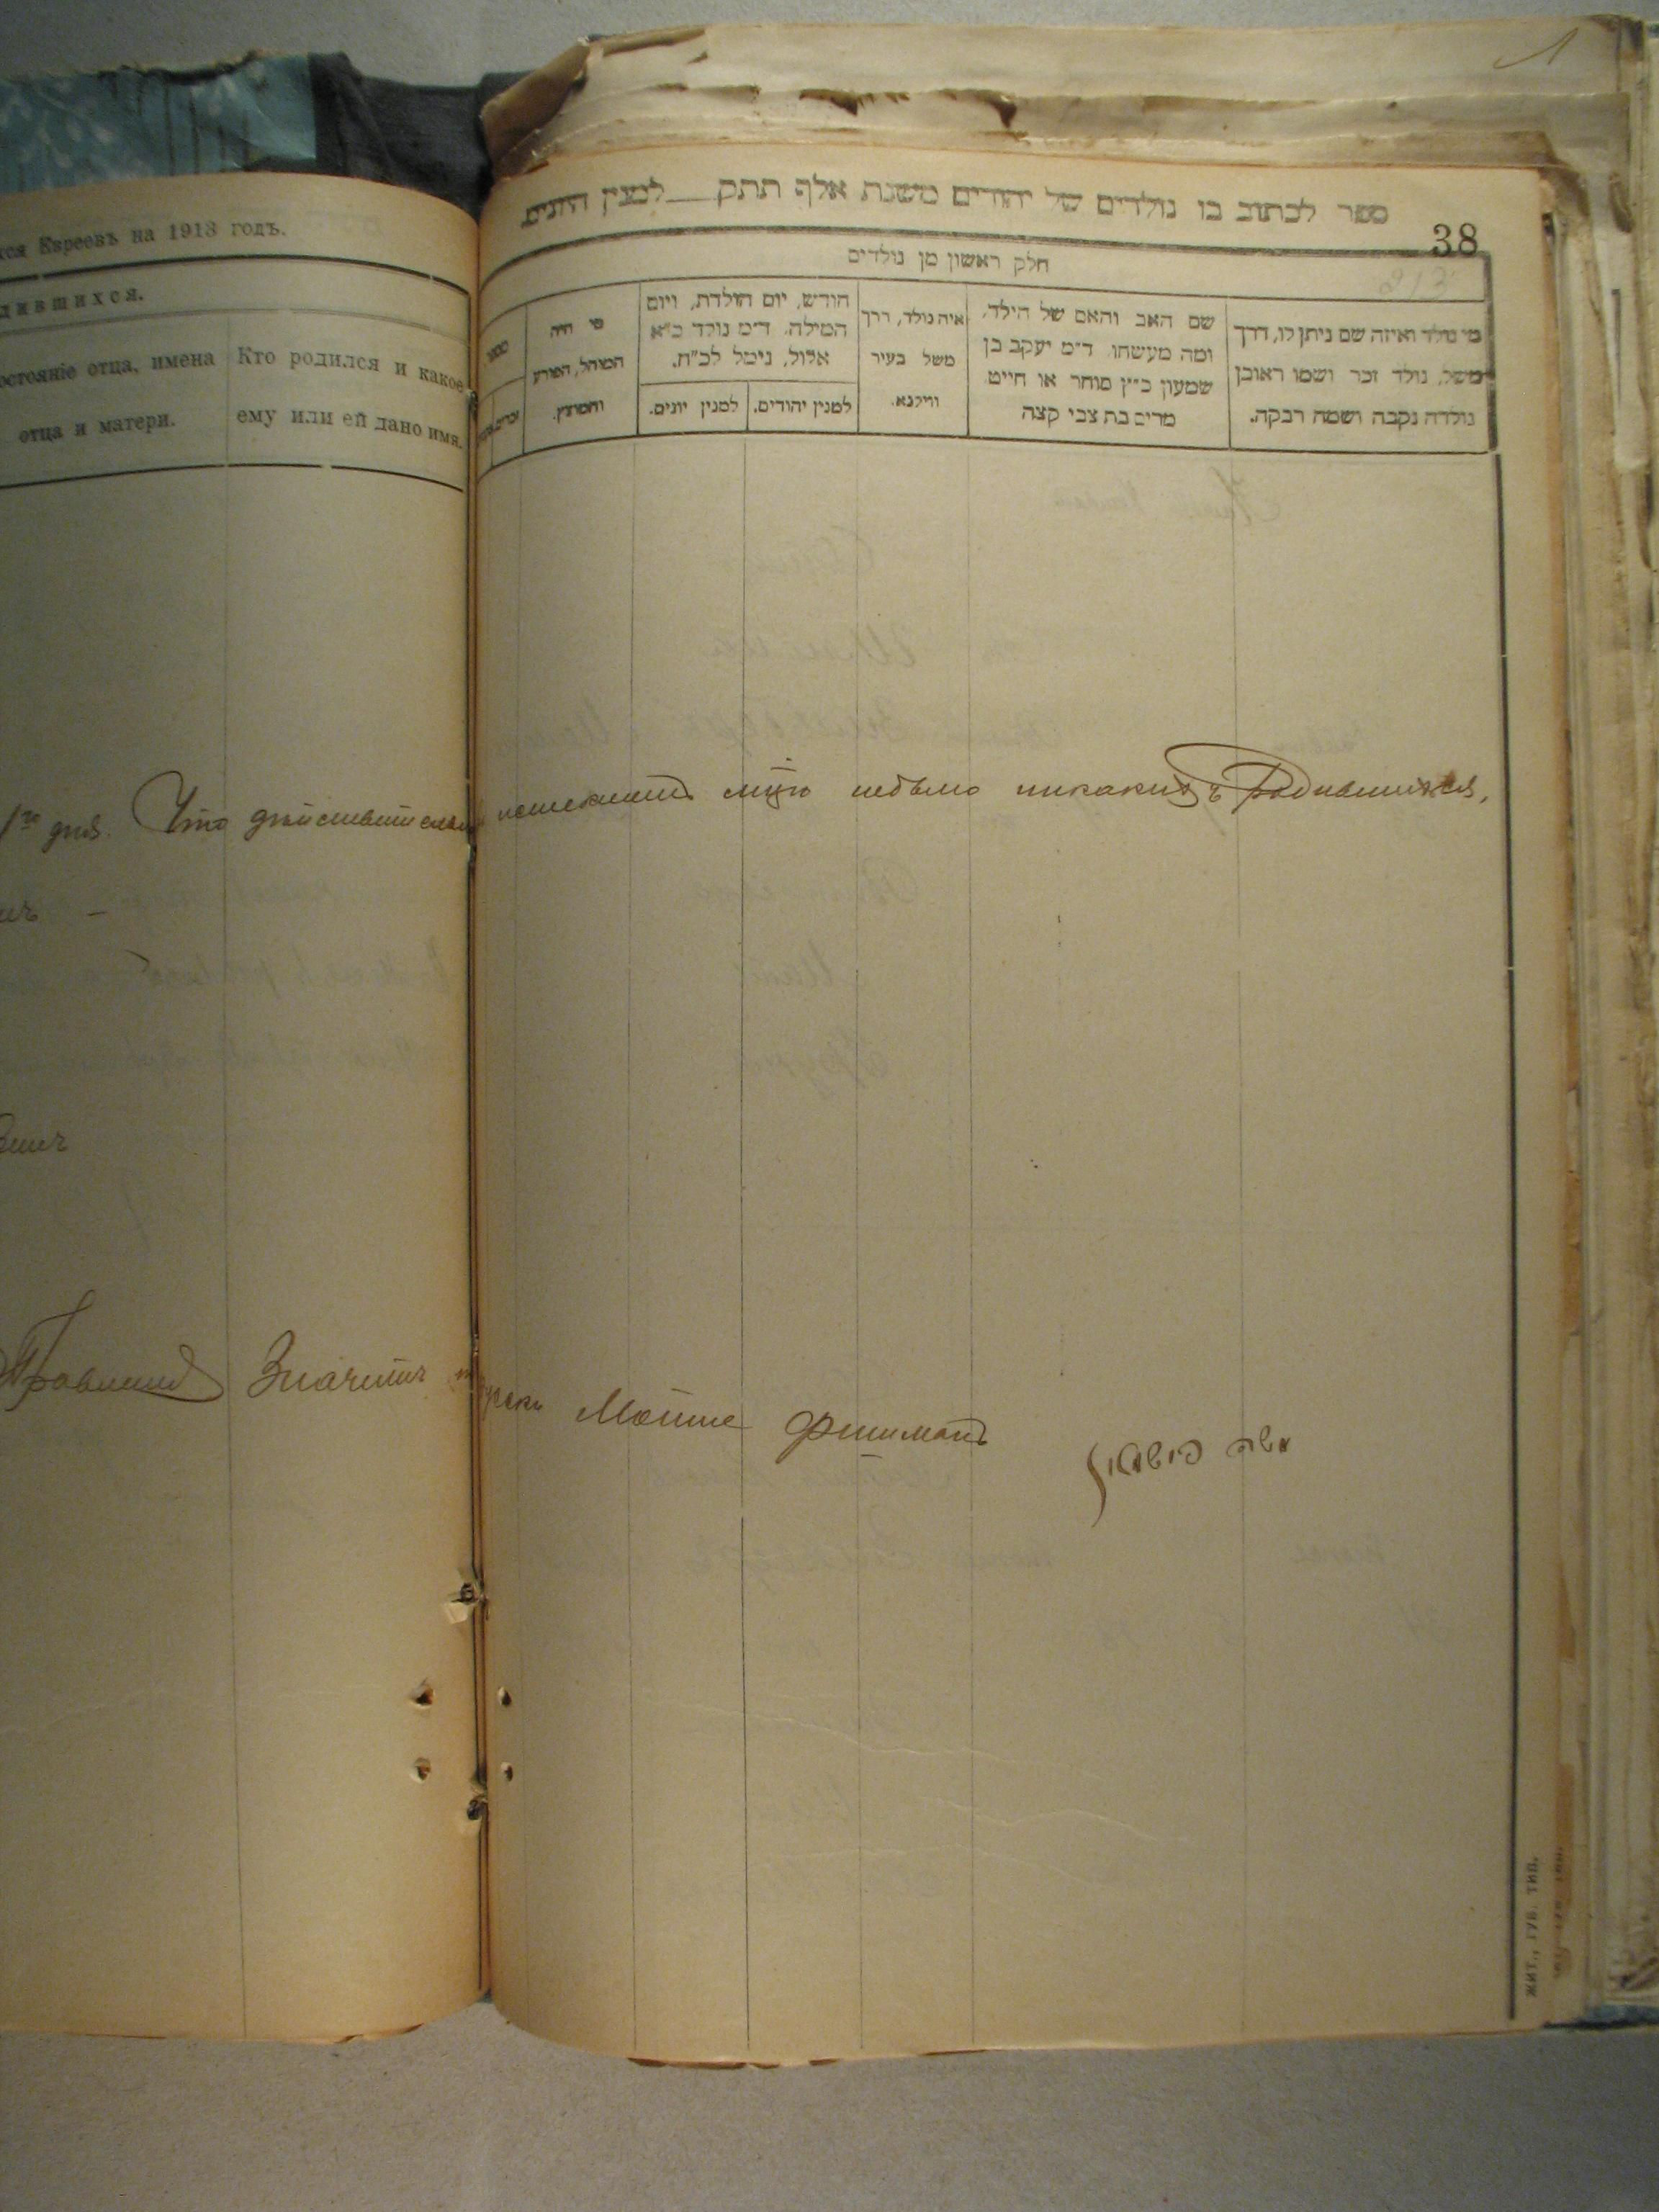 тся Евреевъ на 1913 годъ.
дившихся.
остояніе отца, имена
отца и матери.
Кто родился и какое
ему или ей дано имя.
38
ספר לכתוב בו נולדים של יהודים משנת אלף תתק למנין היונים
חלק ראשון מן נולדים
מי נולד ואיזה שם ניתן לו, דרך
משל, נולד זכר ושמו ראובן
נולדה נקבה ושמה רבקה.
שם האב והאם של הילד,
ומה מעשהו. ד״מ יעקב בן
שמעון כ״ץ סוחר או חייט
מרים בת צבי קצה
איה נולד, דרך
משל בעיר
ווילנא.
חודש, יום הולדת, ויום
המילה. ד״מ נולד כ״א
אלול, נימל לכ״ח.
למנין יהודים.
למנין יונים.
מי היה
המוהל, הפורע
והמוצץ.
дня. Что действительно мцю небыло никакихъ Родившихся,
Значитъ Мойше Фишманъ
משה פישמאן
ЖИТ., ГУБ. ТИП.